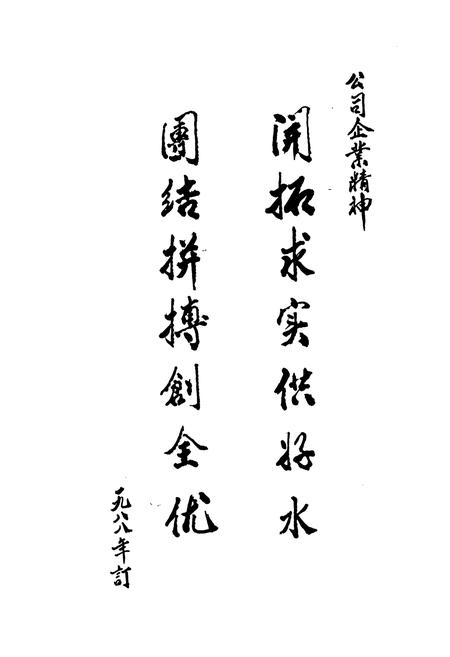 公司企業精神
開拓求实供好水
團结拼搏創全优
一九八八年訂